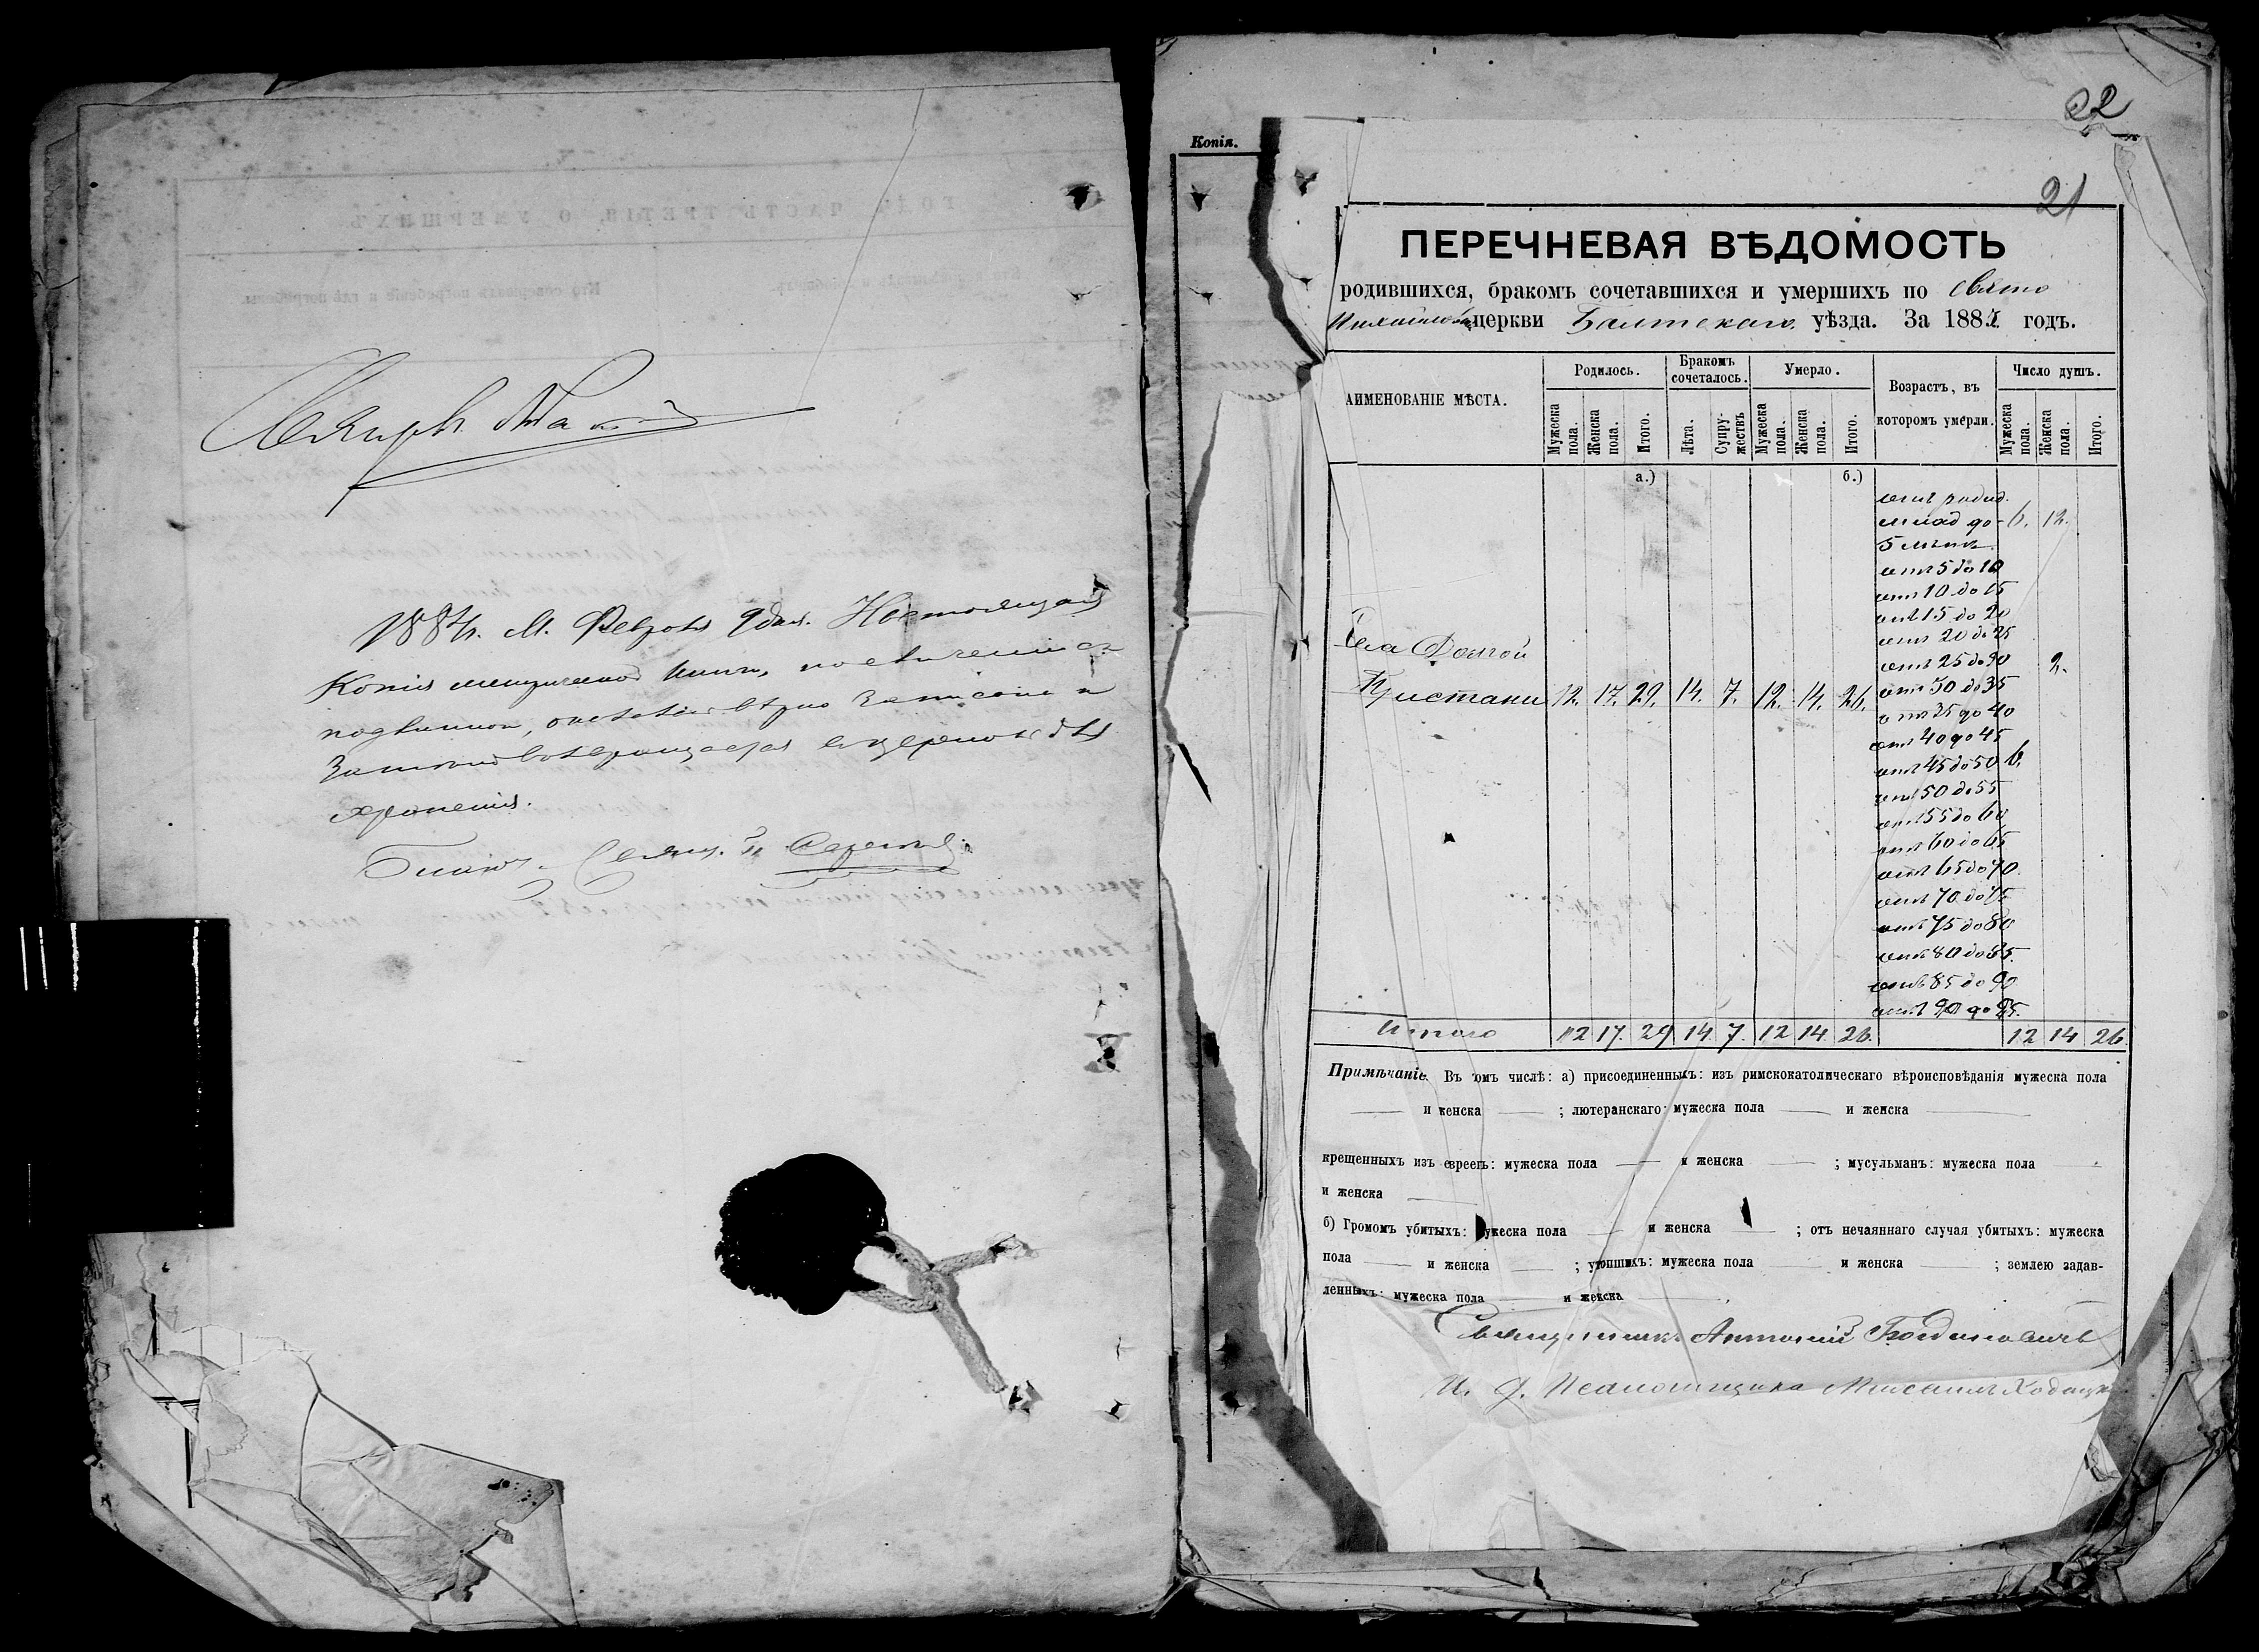 1884 г. М. Февраля 9 дня. Настоящая
Копія метрической книги, по сличеніи съ
подлинной, оказалась вѣрно записана и
храненія.
Копія.
22
21
ПЕРЕЧНЕВАЯ ВѢДОМОСТЬ
родившихся, бракомъ сочетавшихся и умершихъ по Свято
церкви Балтскаго уѣзда. За 188 годъ.
АИМЕНОВАНІЕ МѢСТА.
Родилось.
Бракомъ сочеталось.
Умерло.
Возрастъ, въ которомъ умерли.
Число душъ.
Мужеска пола. Женска пола. Итого. Лѣта. Супружествъ Мужеска пола. Женска пола. Итого. Мужеска пола. Женска пола. Итого.
а.) б.)
отъ рожд.
млад до 6. 12.
5 лѣтъ
отъ 5 до 10
отъ 10 до 15
отъ 15 до 20
отъ 20 до 25
отъ 25 до 30 2.
отъ 30 до 35
отъ 35 до 40
отъ 40 до 45
отъ 45 до 50 6.
отъ 50 до 55
отъ 55 до 60
отъ 60 до 65
отъ 65 до 70.
отъ 70 до 75
отъ 75 до 80
отъ 80 до 85.
отъ 85 до 90
отъ 90 до 95.
Села Долгой
Пристани 12. 17. 29. 14. 7. 12. 14. 26.
Итого 12 17. 29 14. 7. 12 14 26. 12 14 26
Примѣчаніе. Въ томъ числѣ: а) присоединенныхъ: изъ римскокатолическаго вѣроисповѣданія мужеска пола
и женска ; лютеранскаго: мужеска пола и женска
крещенныхъ изъ евреевъ: мужеска пола и женска ; мусульманъ: мужеска пола
и женска
б) Громомъ убитыхъ: мужеска пола и женска ; отъ нечаяннаго случая убитыхъ: мужеска
пола и женска ; утопшихъ: мужеска пола и женска ; землею задав-
ленныхъ: мужеска пола и женска
Священникъ Антоній
И. д. Псаломщика